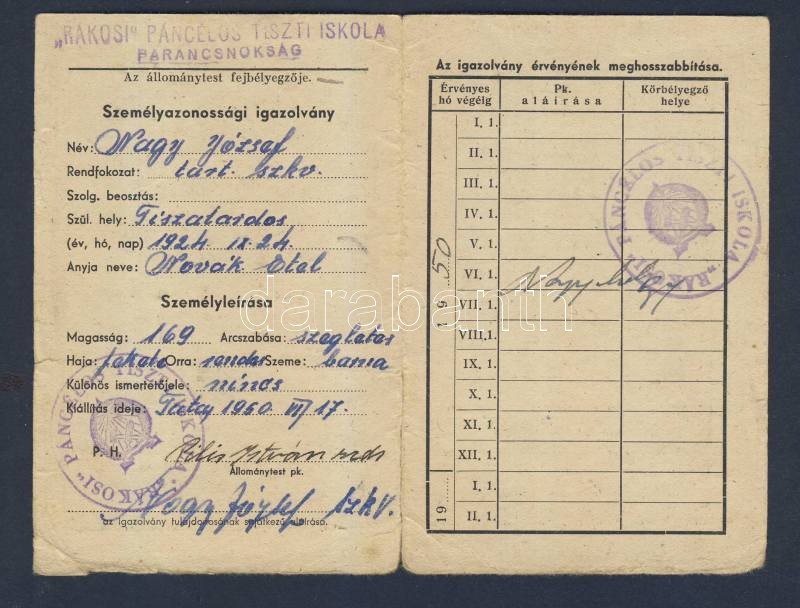 „RÁKOSI” PÁNCÉLOS TISZTI ISKOLA
PARANCSNOKSÁG
Az állománytest fejbélyegzője.
Személyazonossági igazolvány
Név: Nagy József
Rendfokozat: tart. szkv.
Szolg. beosztás:
Szül. hely: Tiszatardos
(év, hó, nap) 1924 IX. 24.
Anyja neve: Novák Etel
Személyleírása
Magasság: 169 Arcszabása: szegletes
Haja: fekete Orra: rendes Szeme: barna
Különös ismertetőjele: nincs
Kiállítás ideje: 1950 17.
P. H. István
Állománytest pk.
Nagy József szkv.
az igazolvány tulajdonosának sajátkezű aláírása.
„RÁKOSI” PÁNCÉLOS TISZTI ISKOLA
Az igazolvány érvényének meghosszabbítása.
Érvényes hó végéig
Pk. aláírása
Körbélyegző helye
1950
I. 1.
II. 1.
III. 1.
IV. 1.
V. 1.
VI. 1.
VII. 1.
VIII. 1.
IX. 1.
X. 1.
XI. 1.
XII. 1.
19
I. 1.
II. 1.
„RÁKOSI” PÁNCÉLOS TISZTI ISKOLA
darabanth